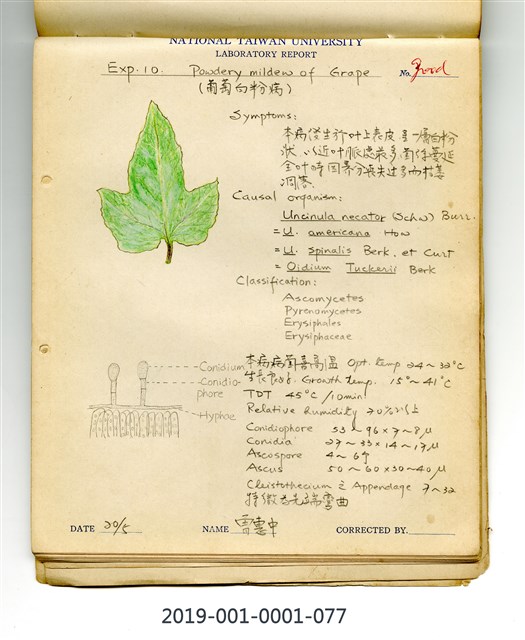 NATIONAL TAIWAN UNIVERSITY
LABORATORY REPORT
Exp. 10. Powdery mildew of Grape No. Good
(葡萄白粉病)
Symptoms:
本病發生於叶上表皮呈一層白粉
狀，以近叶脈處最多，菌絲蔓延
全叶時因養分喪失过多而枯萎
凋落.
Causal organism:
Uncinula necator (Schw) Burr.
= U. americana How
= U. spinalis Berk. et Curt
= Oidium Tuckerii Berk
Classification:
Ascomycetes
Pyrenomycetes
Erysiphales
Erysiphaceae
本病病菌喜高溫 Opt. temp 24~32°C
生長 Growth temp. 15°~41°C
TDT 45°C/10min
Relative humidity 70%以上
Conidiophore 53~96×7~8μ
Conidia 27~33×14~17μ
Ascospore 4~6个
Ascus 50~60×30~40μ
Cleistothecium 之 Appendage 7~32
特徵為先端彎曲
Conidium
Conidio-
phore
Hyphae
DATE 20/5 NAME 曹憲中 CORRECTED BY.
2019-001-0001-077